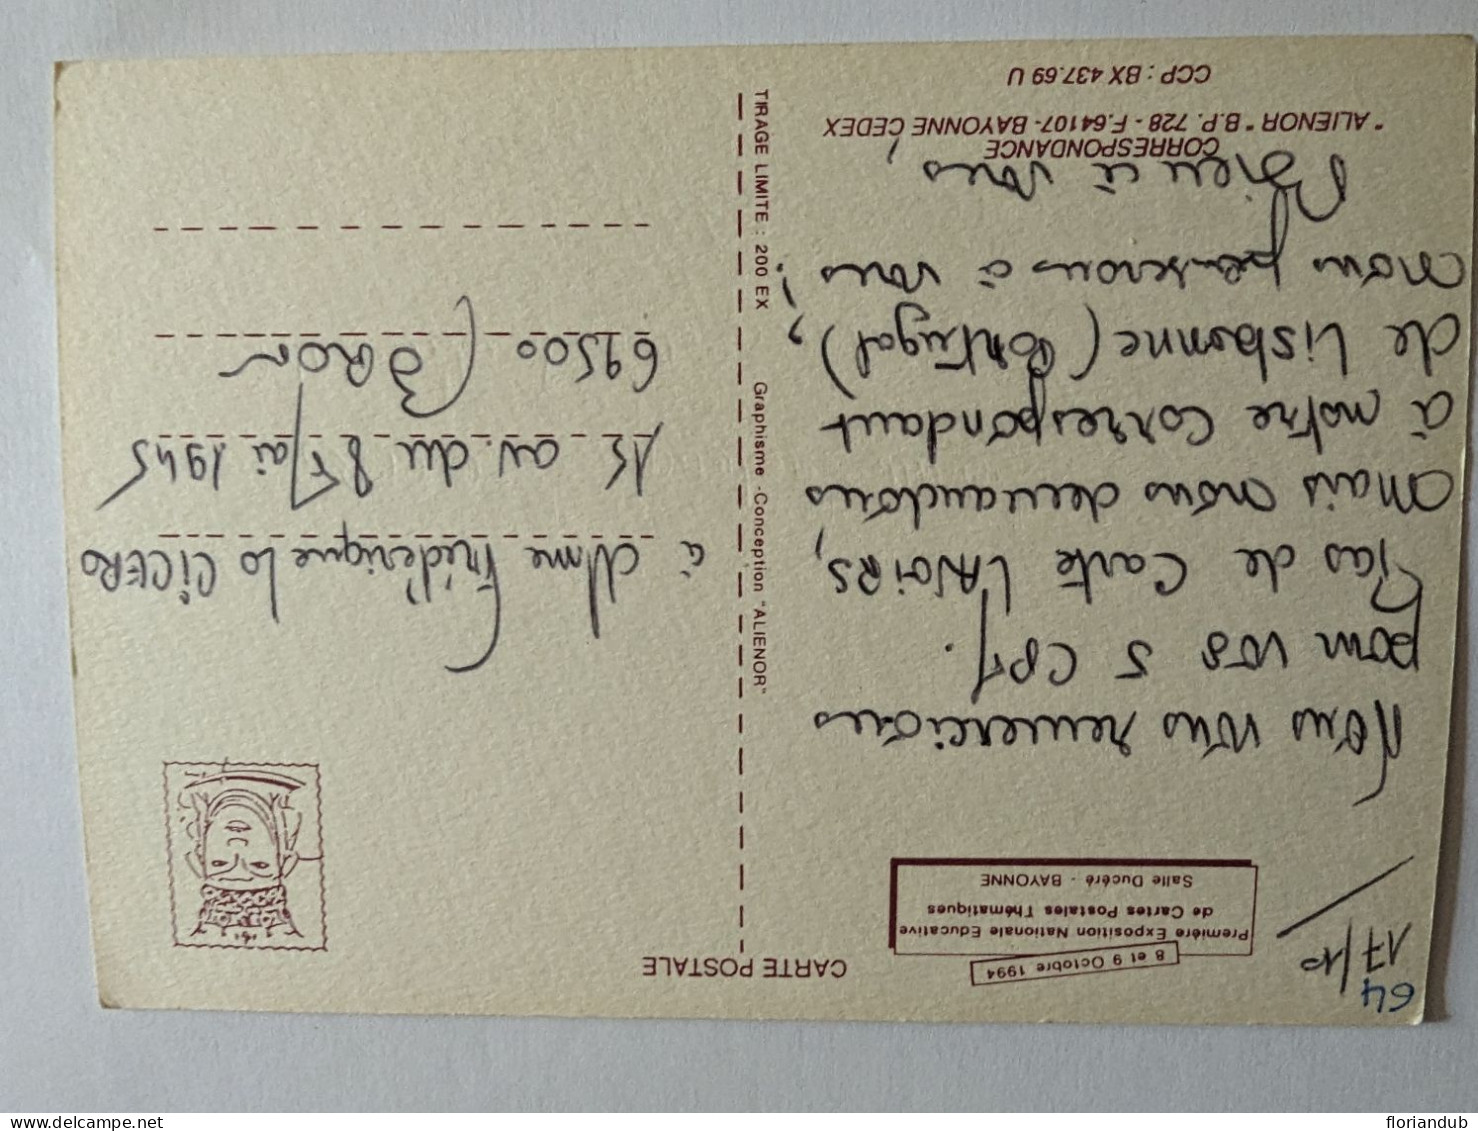 64
17/10
CARTE POSTALE
8 et 9 Octobre 1994
Première Exposition Nationale Educative
de Cartes Postales Thématiques
Salle Ducéré - BAYONNE
Nous vous remercions
pour vos 5 CPM.
Pas de Carte LANOIRS,
mais nous demandons
à notre correspondant
de Lisbonne (Portugal),
nous penserons à vous !
Bien à vous,
CORRESPONDANCE
"ALIENOR" B.P. 728 - F.64107 - BAYONNE CEDEX
CCP : BX 437.69 U
TIRAGE LIMITE : 200 EX Graphisme - Conception "ALIENOR"
à Mme Frédérique lo CICERO
15 av. du 8 Mai 1945
69500 BRON
floriandub